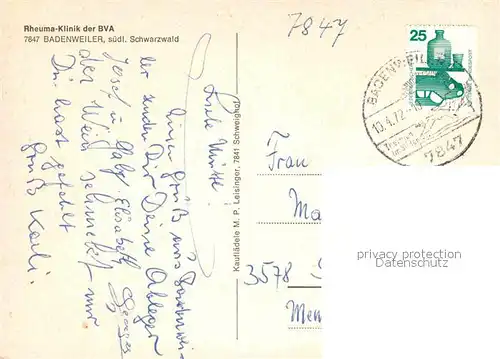 Rheuma-Klinik der BVA
7847 BADENWEILER, südl. Schwarzwald
7847
25
BADENWEILER
10.4.72
7847
Liebe Mutti!
Einen Gruß aus Badenwei-
ler senden Dir Deine Ableger
Josef u. Gaby. Elisabeth Georges
der Wein schmeckt nur
Du hast gefehlt
Gruß Karli.
Kaufläde­le M. P. Leisinger, 7841 Schweighof
Frau
Ma
3578
privacy protection
copyright oldthing.com